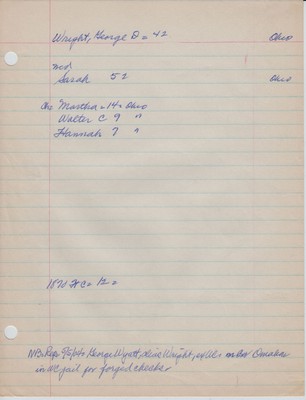 Wright, George D = 42 Ohio
md
Sarah 51 Ohio
chs Martha - 14 - Ohio
Walter C 9 "
Hannah 7 "
1870 FC = 12 =
NB. George Wyatt, alias Wright, Omaha
in NC jail for forged checks